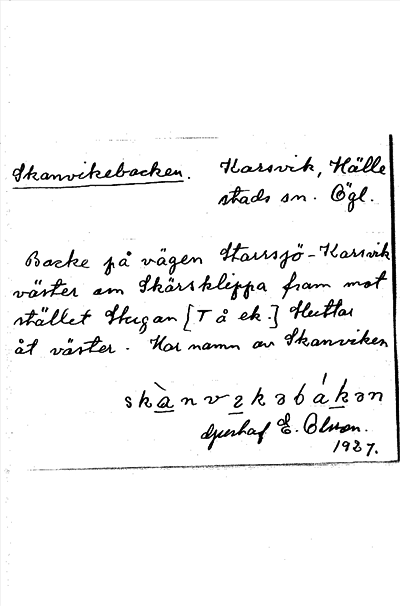 Skanvikebacken. Karsvik, Hälle
stads sn. Ögl.
Backe på vägen Starrsjö-Karsvik
väster om Skärsklippa fram mot
stället Stugan [T å ek.] Sluttar
åt väster. Har namn av Skanviken
E. Olsson.
1927.